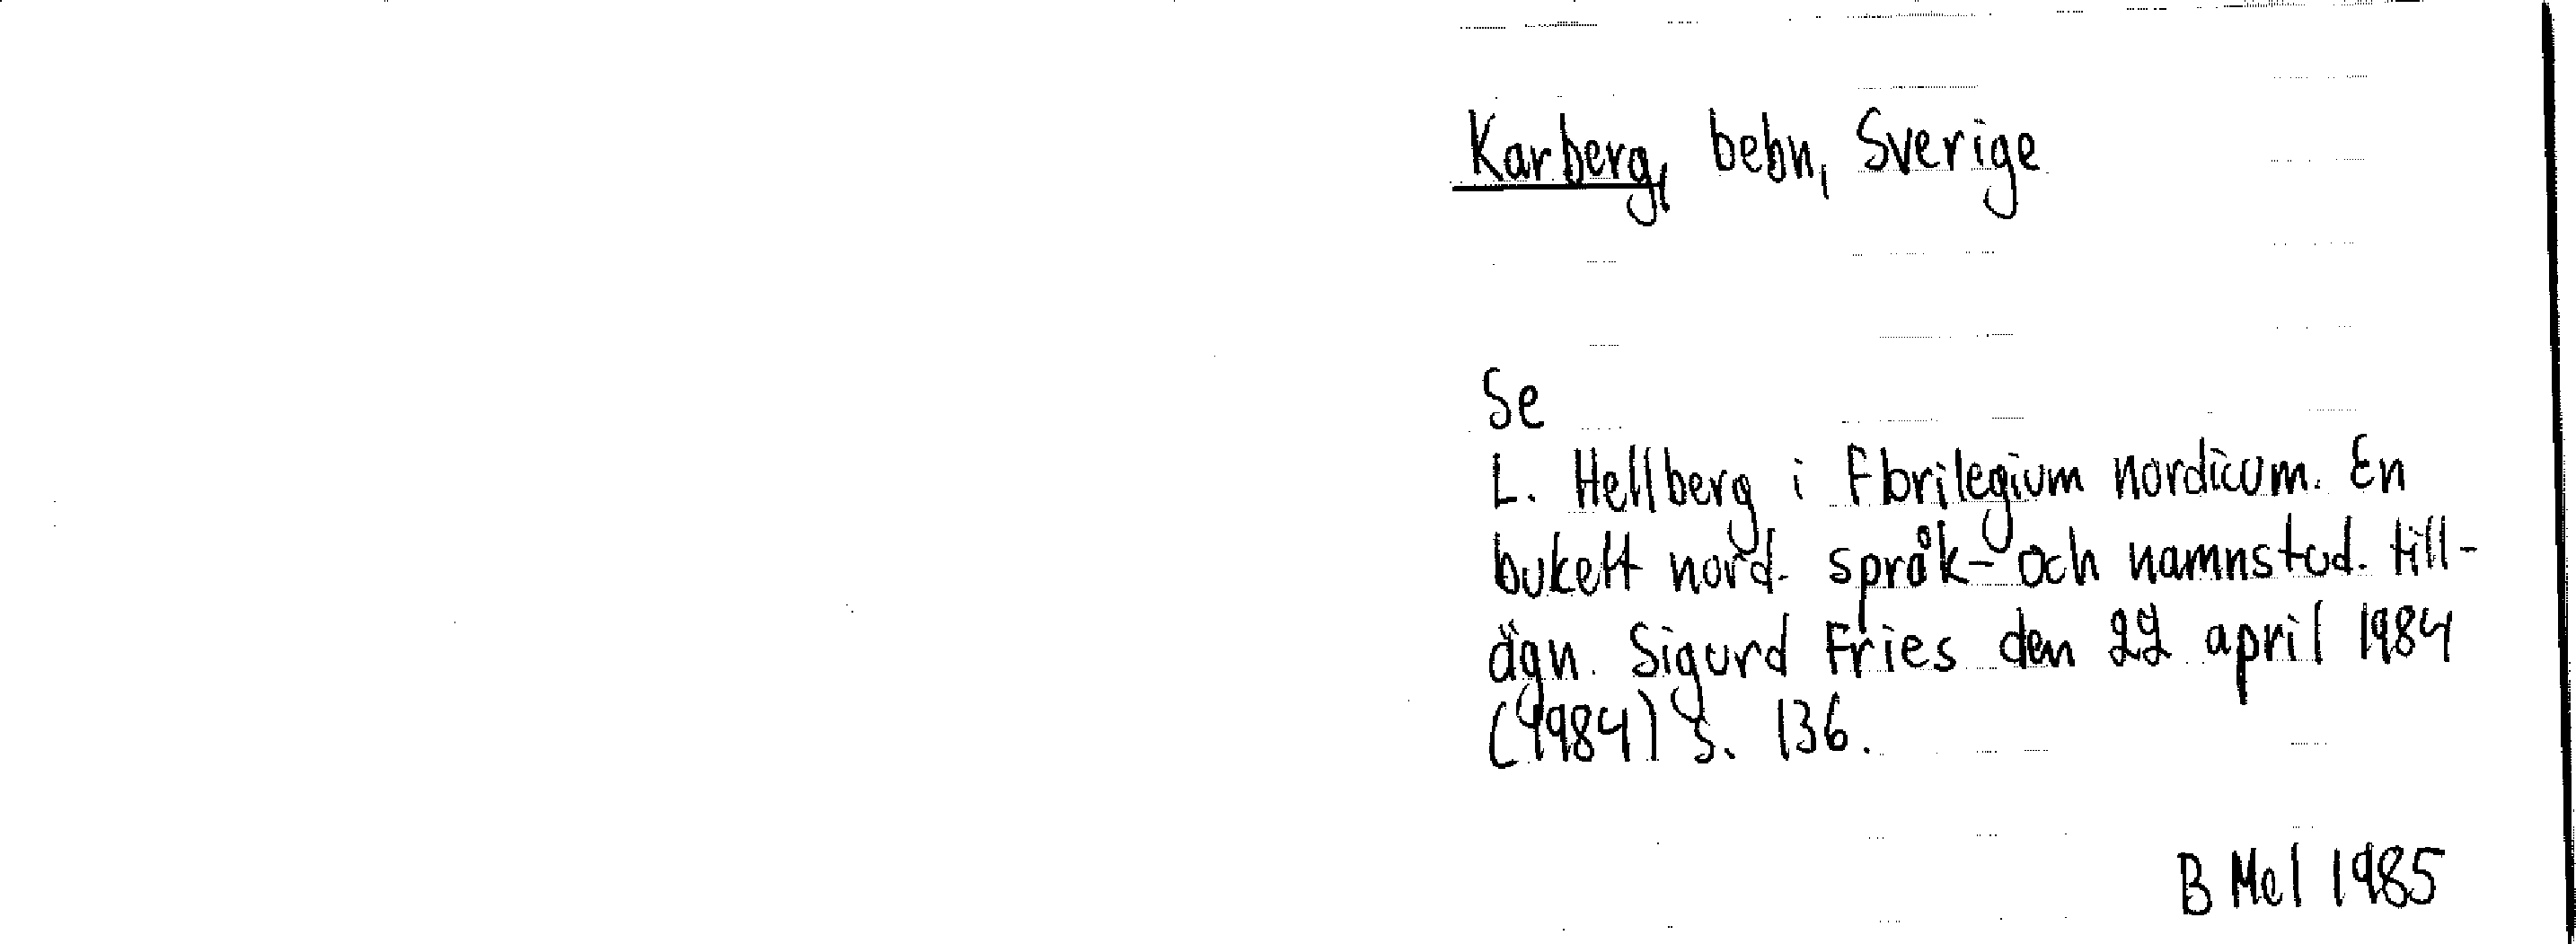 Karberg, bebn, Sverige
Se
L. Hellberg i Florilegium nordicum. En
bukett nord. språk- och namnstud. till-
ägn. Sigurd Fries den 22 april 1984
(1984) s. 136.
B Mel 1985